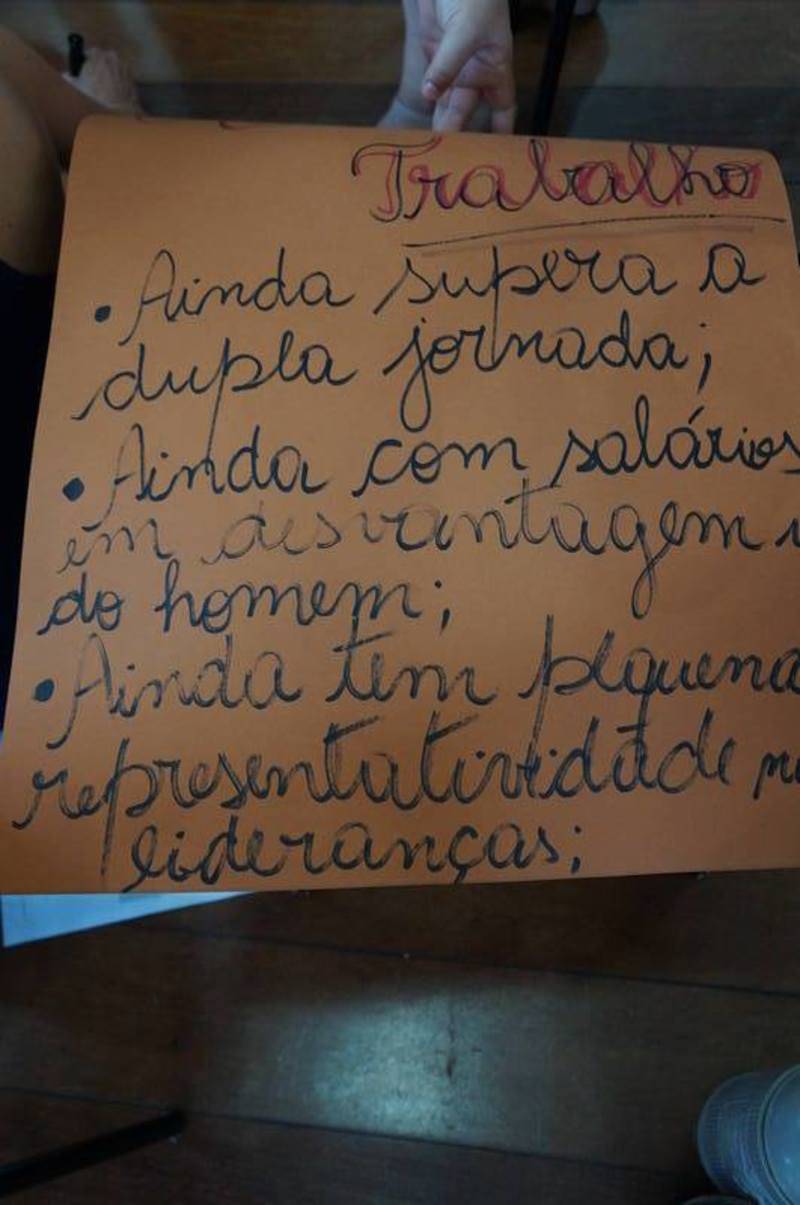 Trabalho
• Ainda supera a
dupla jornada;
• Ainda com salários
em desvantagem
do homem;
• Ainda tem pequena
representatividade
lideranças;